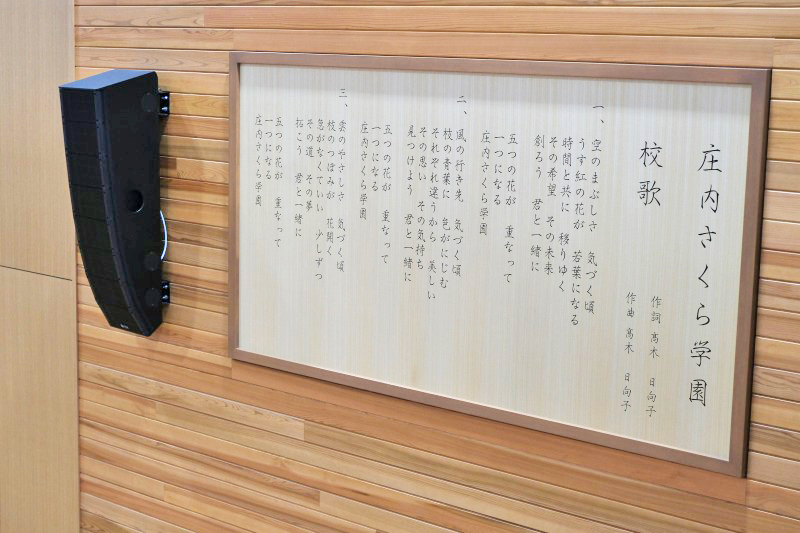 庄内さくら学園
校歌
作詞 髙木 日向子
作曲 髙木 日向子
一、空のまぶしさ 気づく頃
うす紅の花が 若葉になる
時間と共に 移りゆく
その希望 その未来
創ろう 君と一緒に
五つの花が 重なって
一つになる
庄内さくら学園
二、風の行き先 気づく頃
桜の青葉に 色がにじむ
それぞれ違うから 美しい
その思い その気持ち
見つけよう 君と一緒に
五つの花が 重なって
一つになる
庄内さくら学園
三、雲のやさしさ 気づく頃
枝のつぼみが 花開く
急がなくていい 少しずつ
その道 その夢
拓こう 君と一緒に
五つの花が 重なって
一つになる
庄内さくら学園